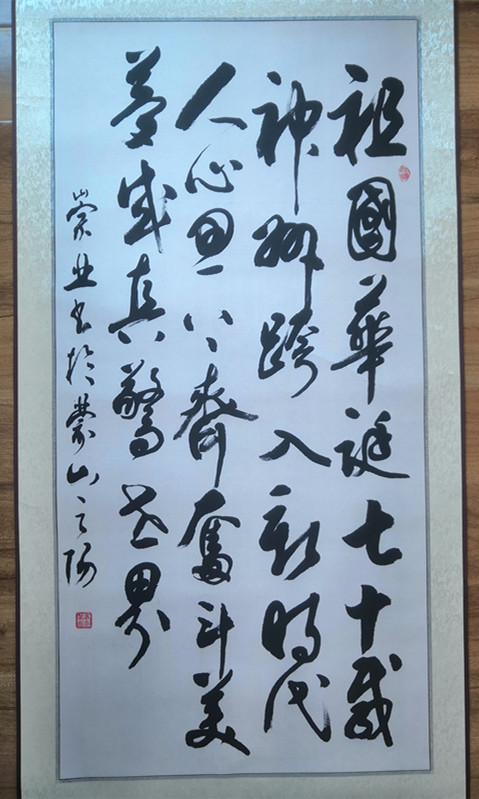 祖國華誕七十載
神州跨入新時代
人心思齊奮斗美
夢成真驚世界
崇业书於蒙山之阳